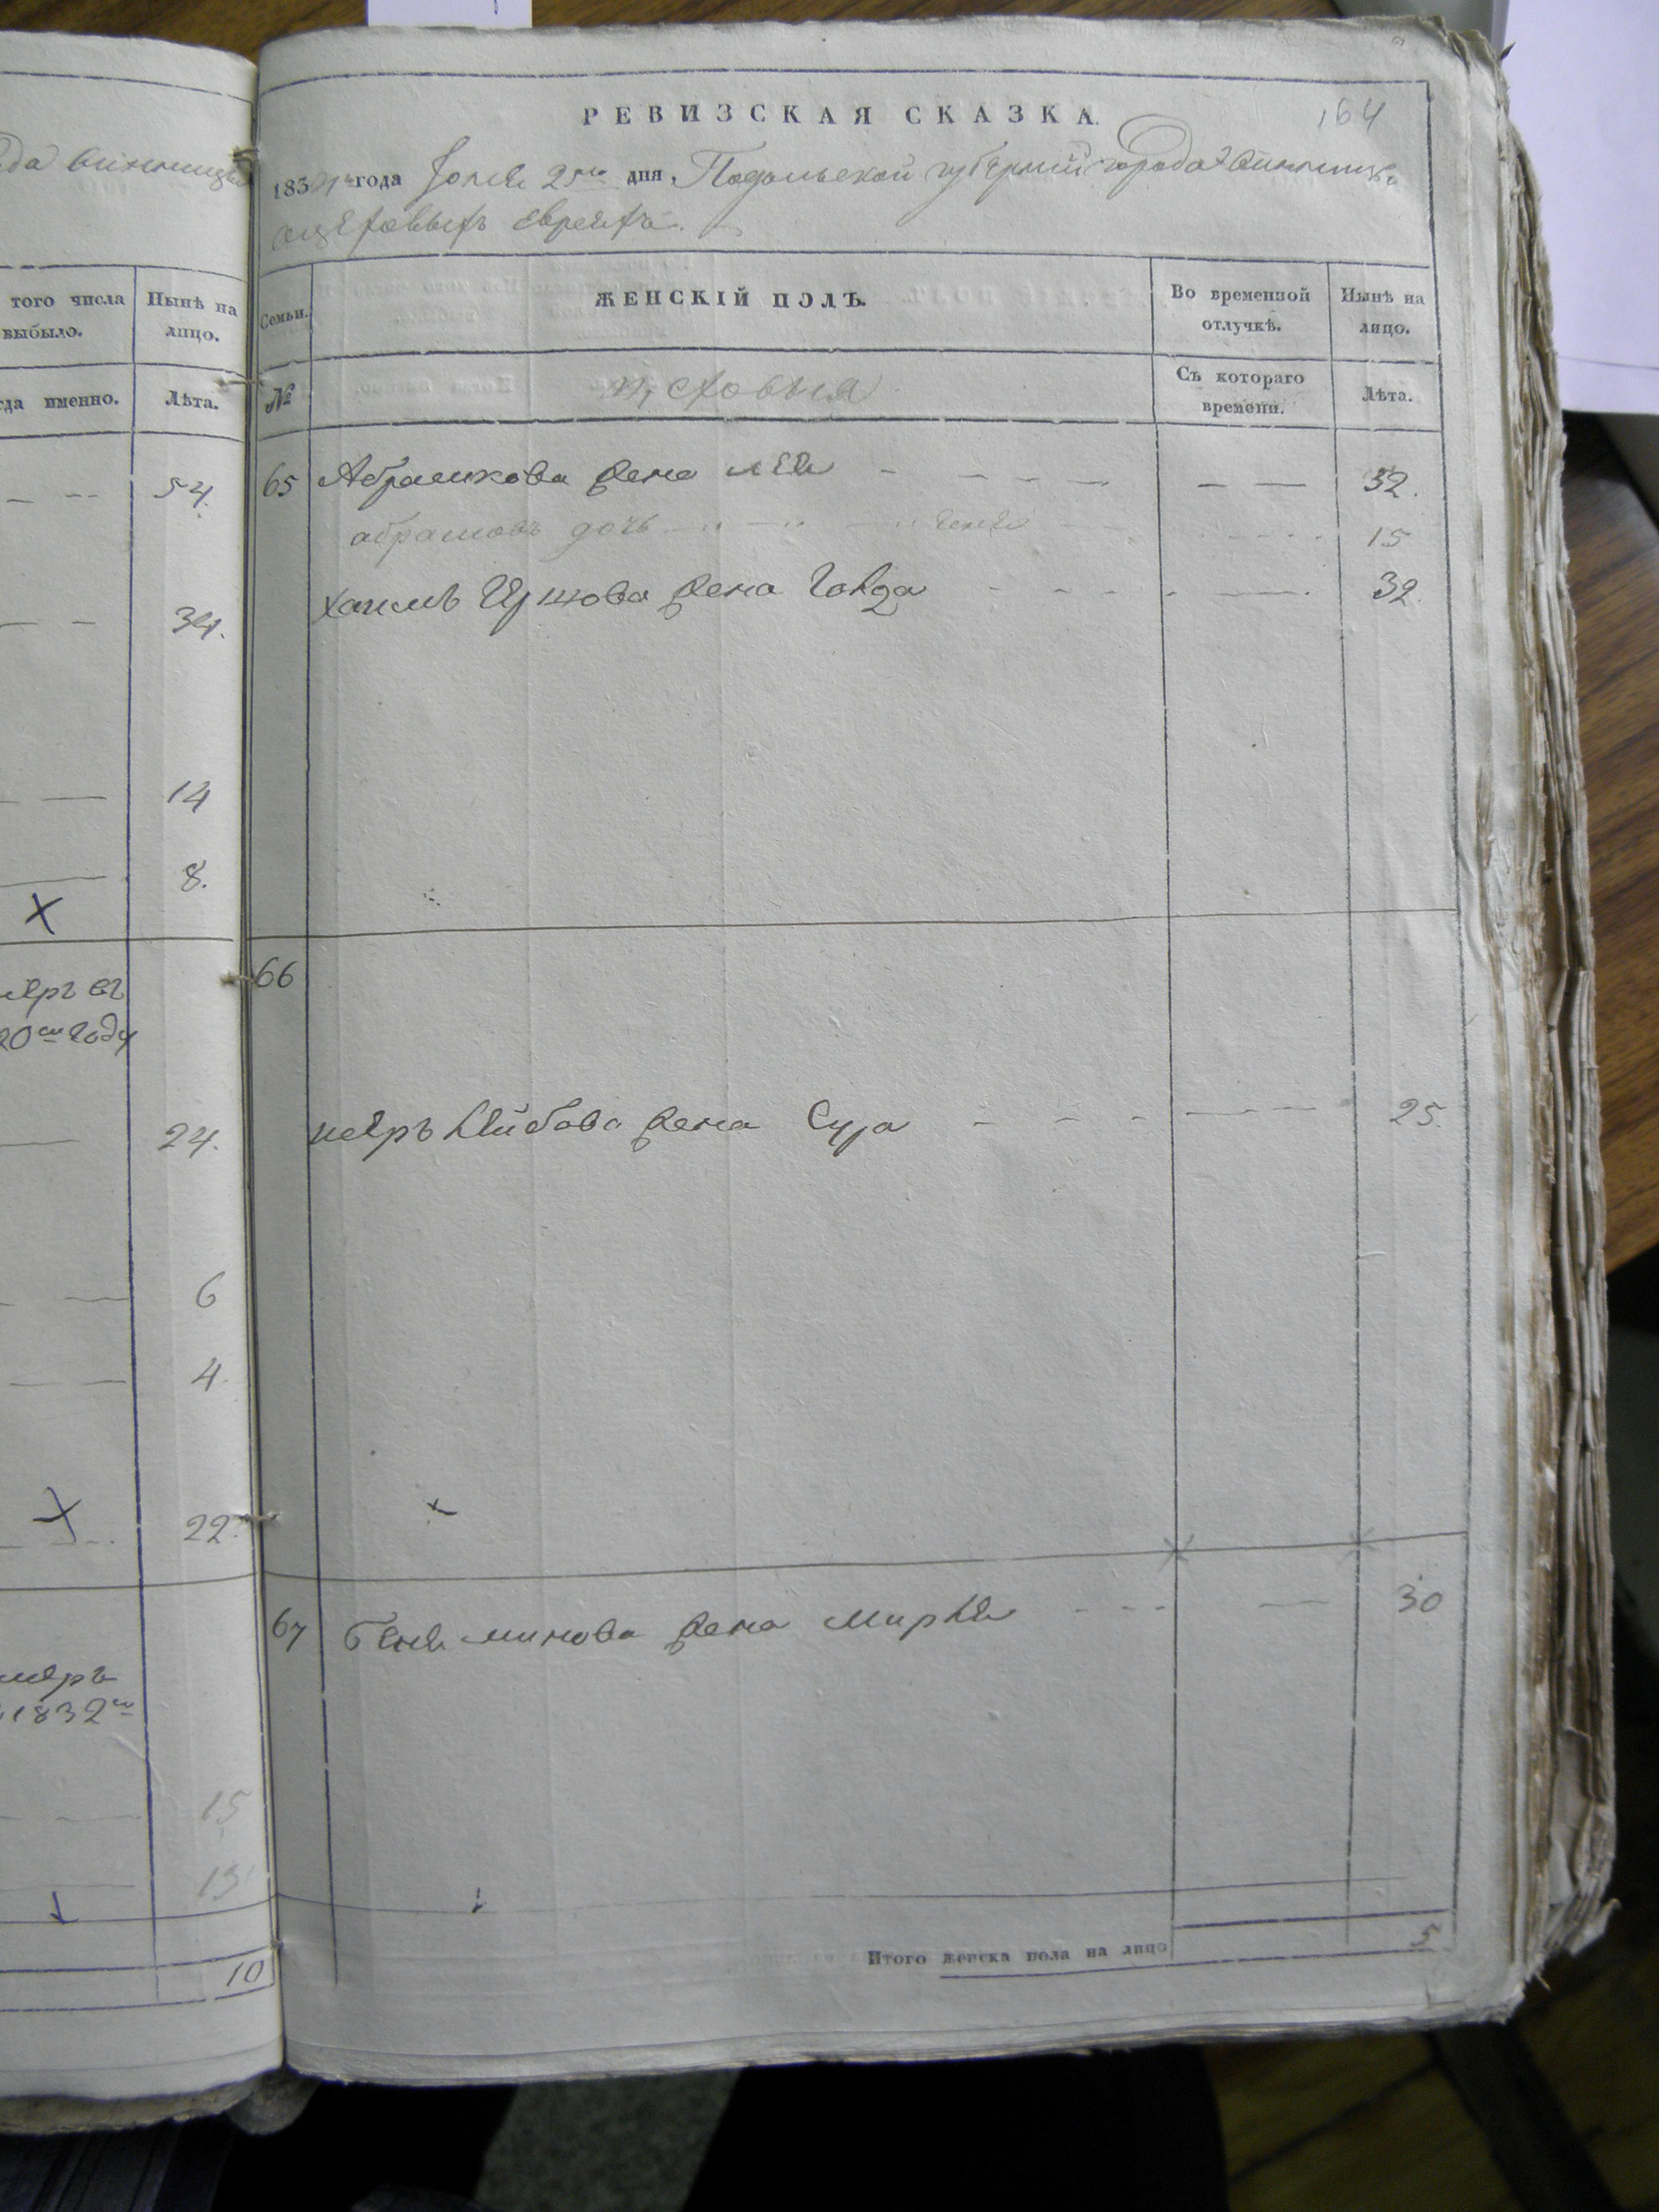 да винницы
того числа
выбыло.
Нынѣ на
лицо.
гда именно.
Лѣта.
54.
34.
14
8.
меръ въ
20м году
24.
6
4.
22.
меръ
1832м
15
13
10
164
РЕВИЗСКАЯ СКАЗКА.
1834го года 25го дня, Подольской губернии города винницы
евреяхъ.
Семьи.
ЖЕНСКІЙ ПОЛЪ.
Во временной
отлучкѣ.
Нынѣ на
лицо.
№
Съ котораго
времени.
Лѣта.
65 Абрамкова жена лея 32.
абрамовъ дочь 15
Хаимъ жена 32.
66
жена Сура 25.
67 беняминова жена мирля 30
Итого женска пола на лицо 5